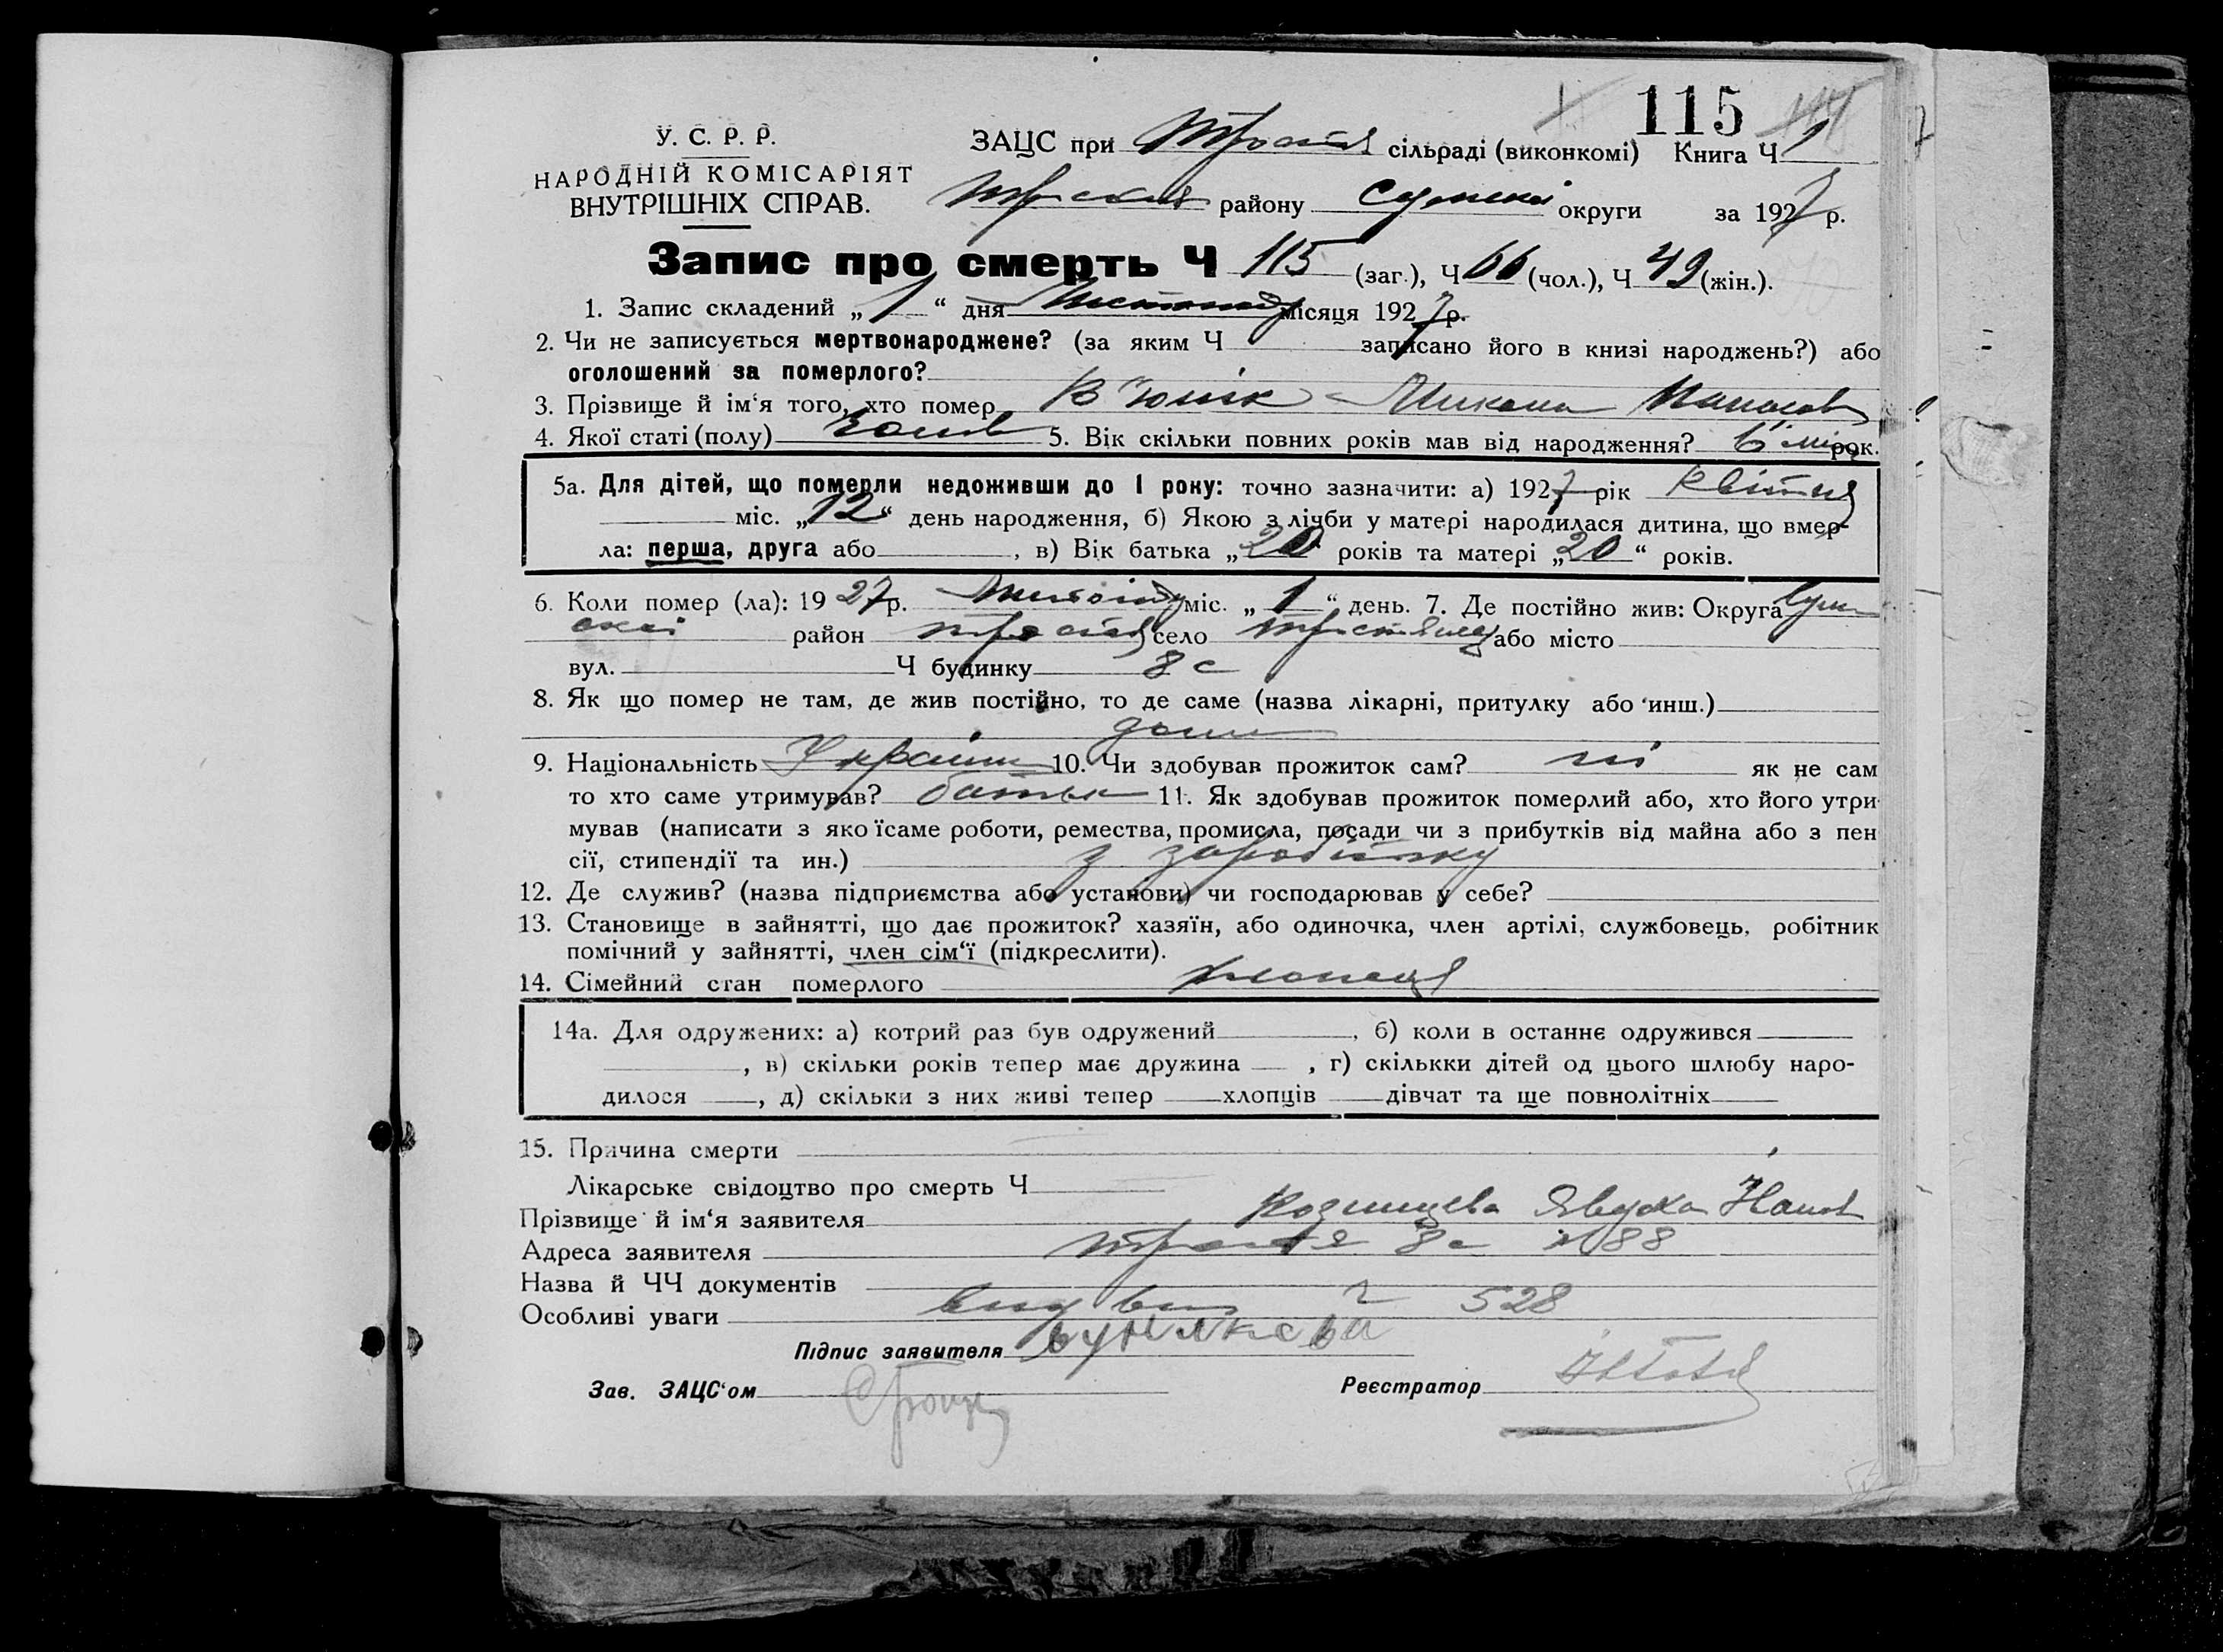 115
У. С. Р. Р.
НАРОДНІЙ КОМІСАРІЯТ
ВНУТРІШНІХ СПРАВ.
ЗАЦС при сільраді (виконкомі) Книга Ч 1
району Сумської округи за 1927 р.
Запис про смерть Ч 115 (заг.), Ч 66 (чол.), Ч 49 (жін.).
1. Запис складений „1“ дня Листопад місяця 1927 р.
2. Чи не записується мертвонароджене? (за яким Ч записано його в книзі народжень?) або
оголошений за померлого?
3. Прізвище й ім‘я того, хто помер В'юнік Микола
4. Якої статі (полу) 5. Вік скільки повних років мав від народження? 6 міс рок.
5а. Для дітей, що померли недоживши до 1 року: точно зазначити: а) 1927 рік Квітня
міс. „12“ день народження, б) Якою з лічби у матері народилася дитина, що вмер-
ла: перша, друга або , в) Вік батька „20 років та матері „20“ років.
6. Коли помер (ла): 1927 р. міс. „1“ день. 7. Де постійно жив: Округа Сум
ской район село або місто
вул. Ч будинку 8 с
8. Як що помер не там, де жив постійно, то де саме (назва лікарні, притулку або инш.)
дома
9. Національність Україн 10. Чи здобував прожиток сам? ні як не сам
то хто саме утримував? батько 11. Як здобував прожиток померлий або, хто його утри-
мував (написати з якоїсаме роботи, ремества, промисла, посади чи з прибутків від майна або з пен
сії, стипендії та ин.) з заробітку
12. Де служив? (назва підприємства або установи) чи господарював у себе?
13. Становище в зайнятті, що дає прожиток? хазяїн, або одиночка, член артілі, службовець, робітник
помічний у зайнятті, член сім‘ї (підкреслити).
14. Сімейний стан померлого хлопець
14а. Для одружених: а) котрий раз був одружений , б) коли в останнє одружився
, в) скільки років тепер має дружина , г) скількки дітей од цього шлюбу наро-
дилося , д) скільки з них живі тепер хлопців дівчат та ще повнолітніх
15. Причина смерти
Лікарське свідоцтво про смерть Ч
Прізвище й ім‘я заявителя Явдоха
Адреса заявителя 8 с № 88
Назва й ЧЧ документів
Особливі уваги 528
Підпис заявителя
Зав. ЗАЦС‘ом Реєстратор